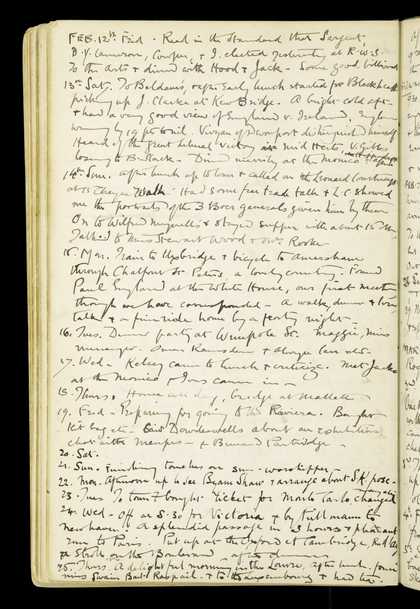 FEB. 12th Frid - Read in the Standard that Sargent,
D. Y. Cameron, Cowper, & I elected yesterday at R.W.S.
To the Arts & dined with Hood & Jack - Some good billiards
13. Sat. To Baldams, after early lunch started for Blackheath
picking up J. Clarke at Kew Bridge. A bright cold aft.
& had a very good view of England v. Ireland, England
winning by 19 pts to nil. Vivyan of Devonport distinguished himself
Heard of the great Liberal victory in Mid Herts V. Gibbs
losing to Bertram. Dined merrily at the Monico
14. Sun. After lunch up to town & called on the Leonard Courtneys
at 15 Cheyne Walk. Had some free trade talk & L.C. showed
me the portraits of the 3 Boer generals given him by them
On to Wilfred & stayed supper with about 15
Talked to Miss Stewart Wood & Mrs Rooke
15. Mon. Train to Uxbridge & bicycle to Amersham
through Chalfont St Peters, a lovely country. Found
Paul England at the White House, our first meeting
though we have corresponded - A walk, dinner & long
talk & a fine ride home by a frosty night -
16. Tues. Dinner party at Wimpole St. Maggie, Miss
& George
17. Wed - Kelsey came to lunch & criticize. Met Jack
at the Monico - Ions came in -
18. Thurs. Home all day, bridge at
19. Frid - Preparing for going to the Riviera. Bag for
Kit bag etc - Saw Dowdeswells about an exhibition
chat with Menpes - & Bernard Partridge -
20. Sat.
21. Sun. Finishing touches on sun-worshipper -
22. Mon. Afternoon up to see Byam Shaw & arrange about S.K. pose -
23. Tues. To town & bought ticket for Monte Carlo changed
24. Wed - Off at 8.50 for Victoria & by Pullman to
Newhaven. A splendid passage in 3 hours & pleasant
run to Paris. Put up at the Oxford et Cambridge, Rue
a Stroll on the Boulevard after dinner
25. Thurs. A delightful morning in the Louvre, after lunch found
Miss Swain & to the Luxembourg & had tea